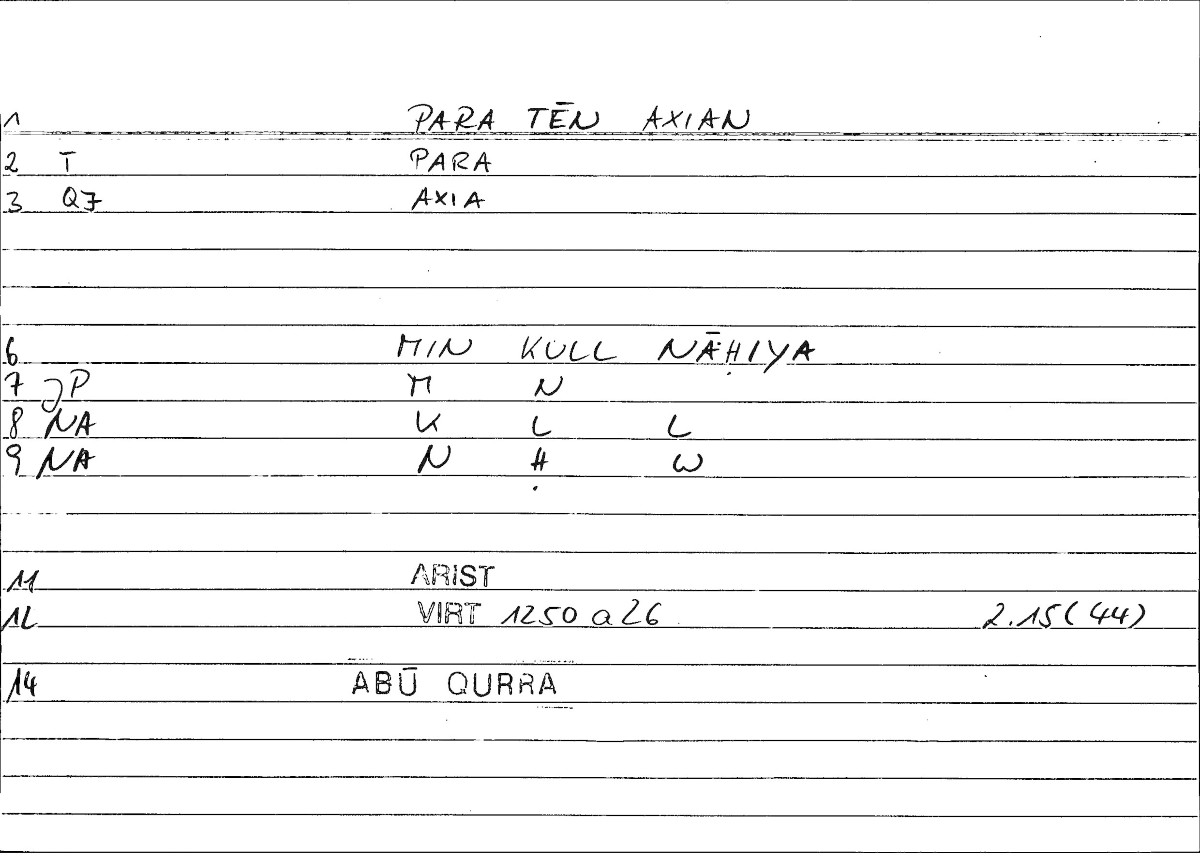 1 PARA TĒN AXIAN
2 T PARA
3 QJ AXIA
6 MIN KULL NĀḤIYA
7 JP M N
8 NA K L L
9 NA N Ḥ W
11 ARIST
12 VIRT 1250 a 26 2.15 (44)
14 ABŪ QURRA